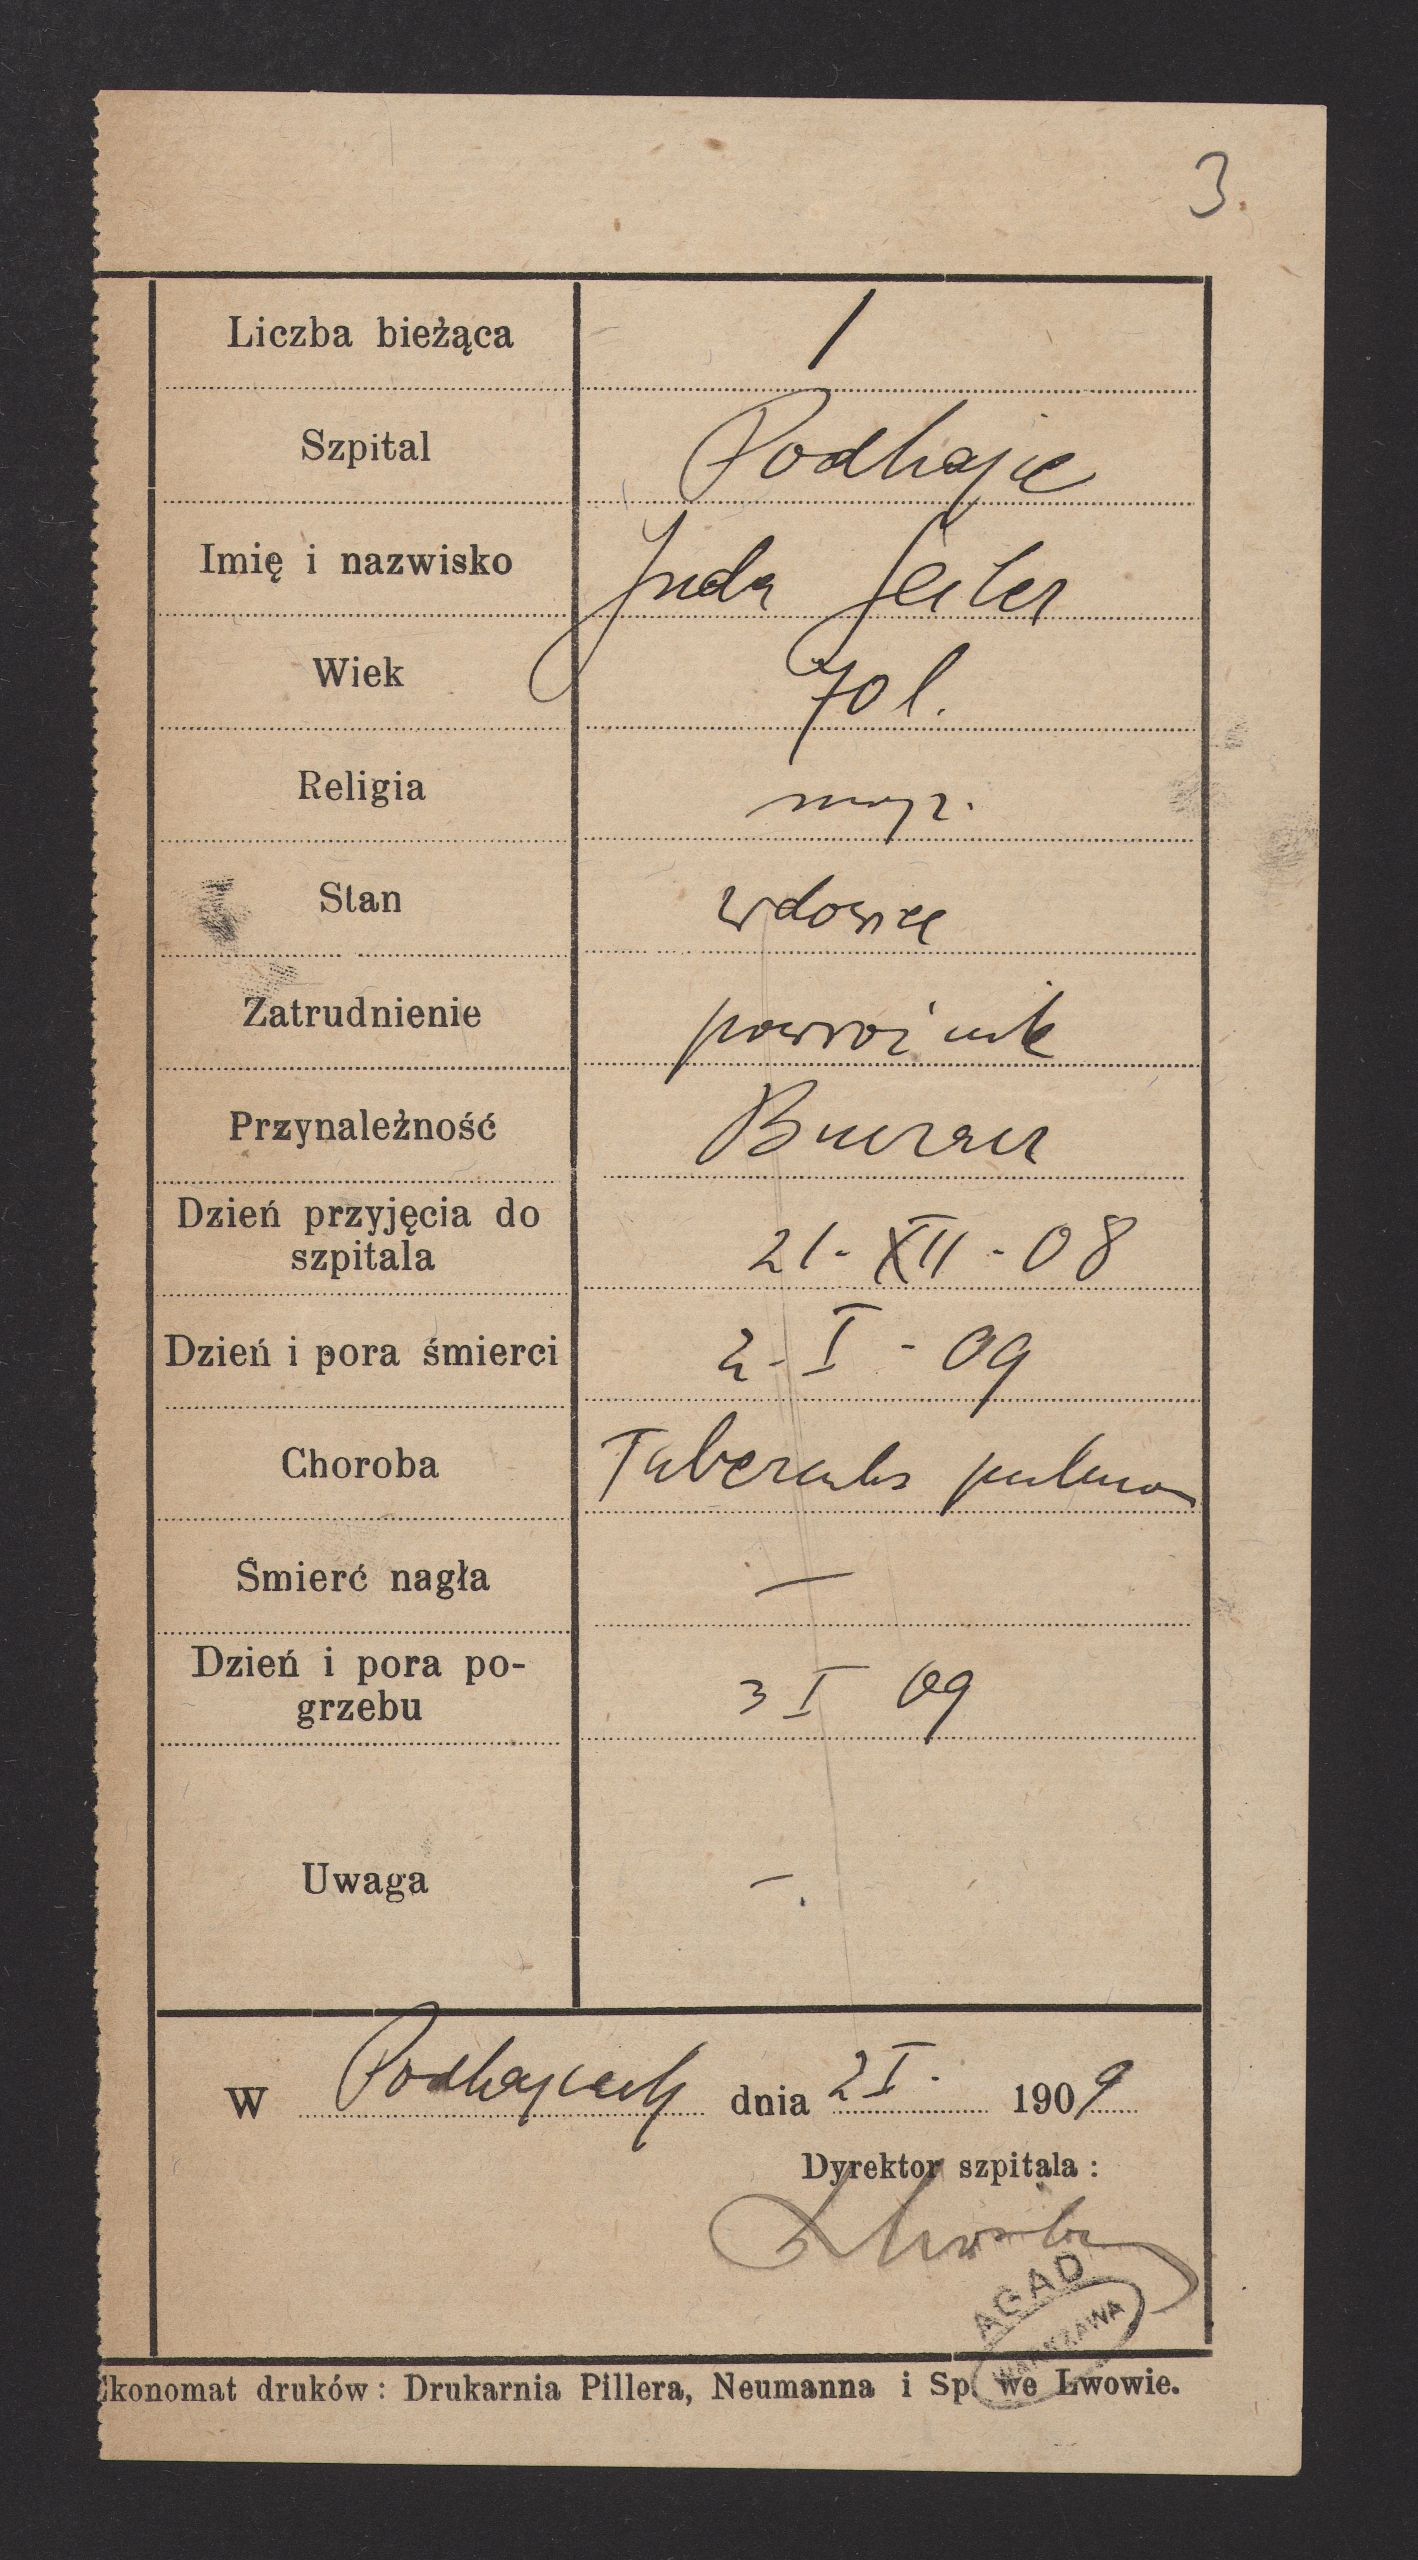 3.
Liczba bieżąca 1
Szpital Podhajce
Imię i nazwisko Juda Seiler
Wiek 70 l.
Religia mojż.
Stan wdowiec
Zatrudnienie powroźnik
Przynależność Buczacz
Dzień przyjęcia do
szpitala 21-XII-08
Dzień i pora śmierci 2-I-09
Choroba Tuberculs pulmon
Śmierć nagła —
Dzień i pora po-
grzebu 3 I 09
Uwaga —.
W Podhajcach dnia 2 I. 1909
Dyrektor szpitala:
AGAD
WARSZAWA
Ekonomat druków: Drukarnia Pillera, Neumanna i Sp. we Lwowie.